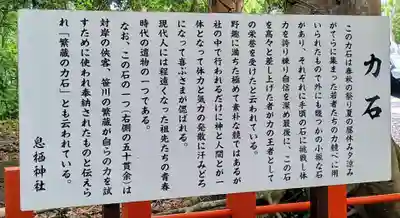 力石
この力石は春秋の祭り夏の昼休み夕涼み
がてらに集まった若者たちの力競べに用
いられたもので外にも幾つかの小振な石
があり、それぞれに手頃の石に挑戦し体
力を誇り練り自信を深め最後に、この石
を高々と差し上げた者が力の王者として
の栄誉を受けたと云われている。
野趣に満ちた極めて素朴な競ではあるが
社の中で行われるだけに神と人間とが一
体となって体力と気力の発散に汗みどろ
になって喜ぶさまが偲ばれる。
現代人には程遠くなった祖先たちの青春
時代の遺物の一つである。
なお、この石の一つ右側の五十貫余は
対岸の侠客、笹川の繁蔵が自らの力を試
すために使われ奉納されたものと伝えら
れ「繁蔵の力石」とも云われている。
息栖神社